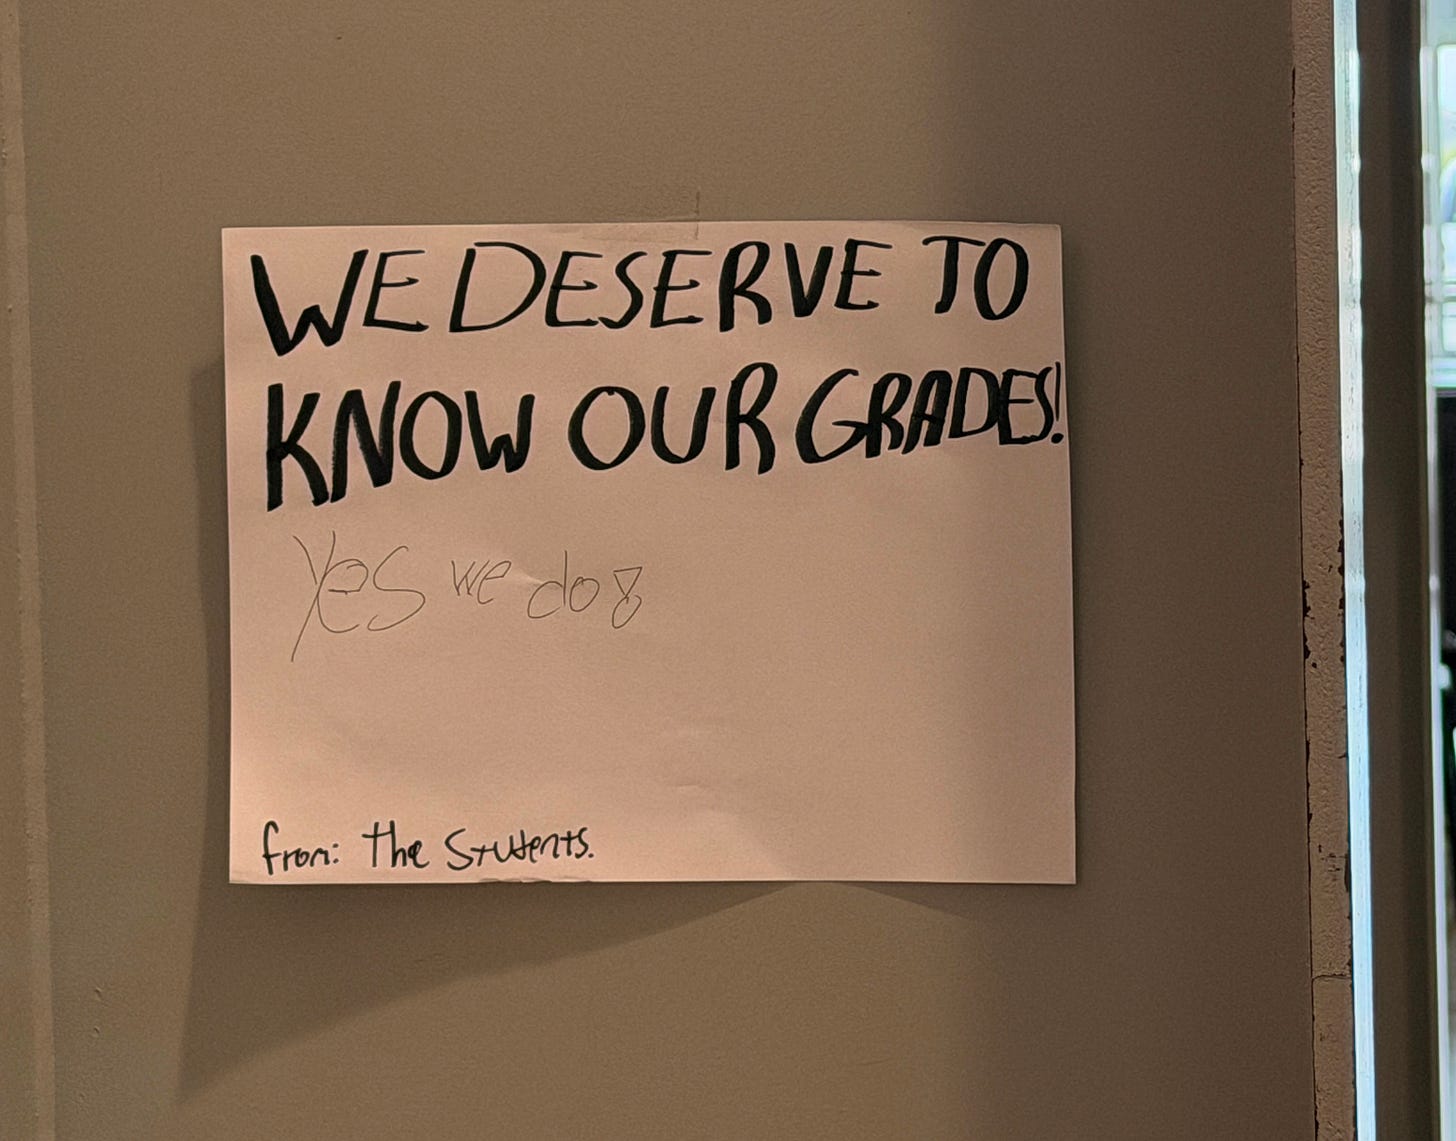 WE DESERVE TO
KNOW OUR GRADES!
Yes we do!
from: The Students.